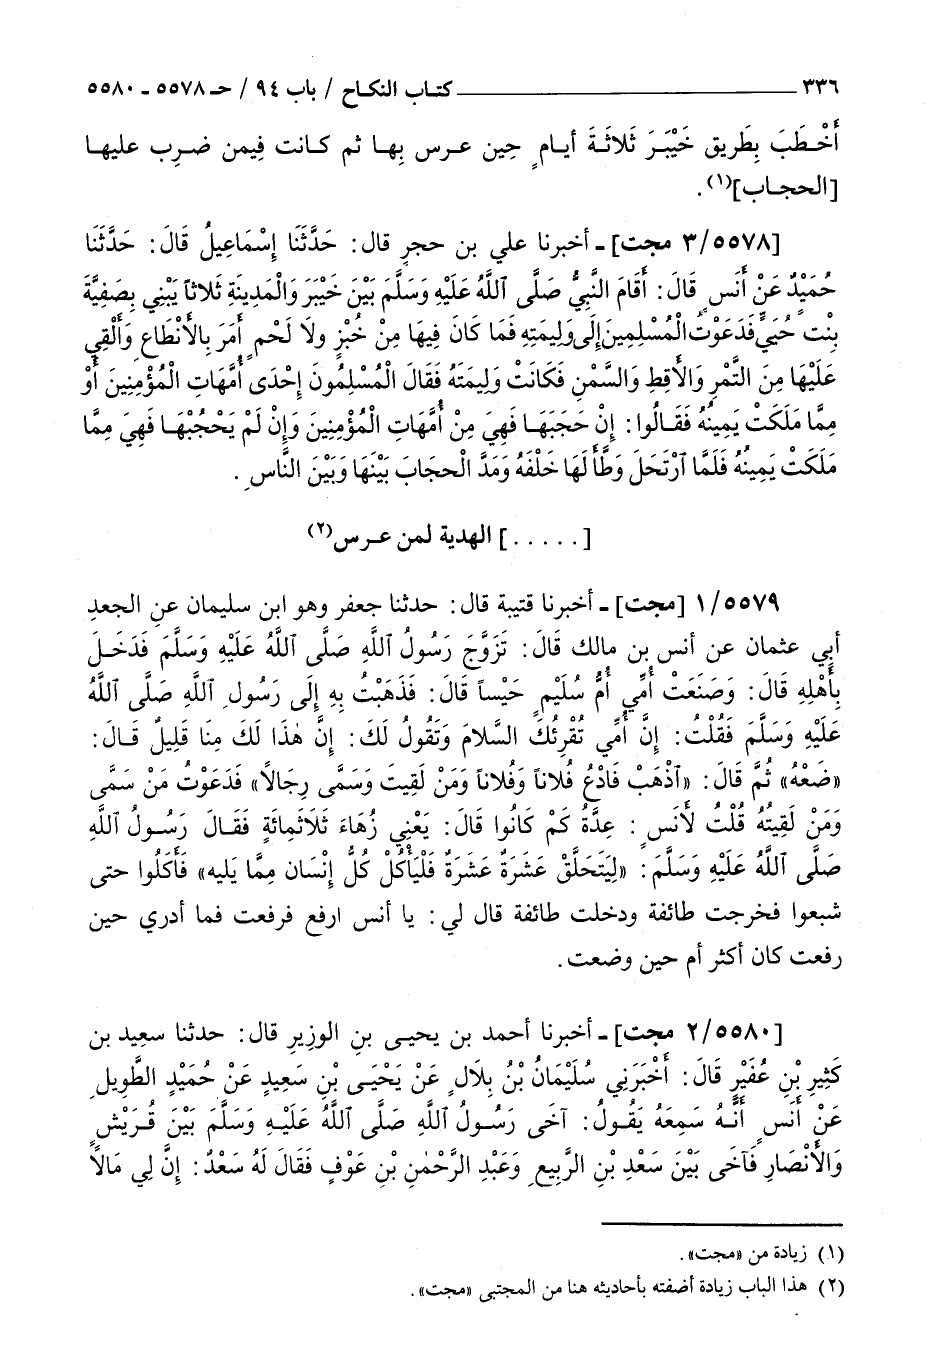 ٣٣٦ ــــــ كتاب النكاح / باب ٩٤ / حـ ٥٥٧٨ ـ ٥٥٨٠
أَخْطَبَ بِطَرِيق خَيْبَرَ ثَلَاثَةَ أيامٍ حِين عرس بِها ثم كانت فِيمن ضرِب عليها
[الحجاب](١).
[٣/٥٥٧٨ مجت] ـ أخبرنا علي بن حجرٍ قال: حَدَّثَنَا إِسْمَاعِيلُ قَالَ: حَدَّثَنَا
حُمَيْدٌ عَنْ أَنَسٍ قَالَ: أَقَامَ النَّبِيُّ صَلَّى ٱللَّهُ عَلَيْهِ وَسَلَّمَ بَيْنَ خَيْبَرَ وَالْمَدِينَةِ ثَلاثاً يَبْنِي بِصَفِيَّةَ
بِنْتِ حُيَيٍّ فَدَعَوْتُ الْمُسْلِمِينَ إِلَى وَلِيمَتِهِ فَمَا كَانَ فِيهَا مِنْ خُبْزٍ ولَا لَحْمٍ أَمَرَ بِالْأَنْطَاعِ وَأَلْقِي
عَلَيْهَا مِنَ التَّمْرِ وَالْأَقِطِ وَالسَّمْنِ فَكَانَتْ وَلِيمَتَهُ فَقَالَ الْمُسْلِمُونَ إِحْدَى أُمَّهَاتِ الْمُؤْمِنِينَ أَوْ
مِمَّا مَلَكَتْ يَمِينُهُ فَقَالُوا: إِنْ حَجَبَهَا فَهِيَ مِنْ أُمَّهَاتِ الْمُؤْمِنِينَ وَإِنْ لَمْ يَحْجُبْهَا فَهِيَ مِمَّا
مَلَكَتْ يَمِينُهُ فَلَمَّا ٱرْتَحَلَ وَطَّأَ لَهَا خَلْفَهُ وَمَدَّ الْحِجَابَ بَيْنَهَا وَبَيْنَ النَّاسِ.
[.....] الهدية لمن عرس(٢)
١/٥٥٧٩ [مجت] ـ أخبرنا قتيبة قال: حدثنا جعفر وهو ابن سليمان عنِ الجعدِ
أبِي عثمان عن أنسِ بنِ مالك قَالَ: تَزَوَّجَ رَسُولُ ٱللَّهِ صَلَّى ٱللَّهُ عَلَيْهِ وَسَلَّمَ فَدَخَلَ
بِأَهْلِهِ قَالَ: وَصَنَعَتْ أُمِّي أُمُّ سُلَيْمٍ حَيْساً قَالَ: فَذَهَبْتُ بِهِ إِلَى رَسُولِ ٱللَّهِ صَلَّى ٱللَّهُ
عَلَيْهِ وَسَلَّمَ فَقُلْتُ: إِنَّ أُمِّي تُقْرِئُكَ السَّلَامَ وَتَقُولُ لَكَ: إِنَّ هٰذَا لَكَ مِنَا قَلِيلٌ قَالَ:
«ضَعْهُ» ثُمَّ قَالَ: «ٱذْهَبْ فَادْعُ فُلَاناً وَفُلَاناً وَمَنْ لَقِيتَ وَسَمَّى رِجَالاً» فَدَعَوْتُ مَنْ سَمَّى
وَمَنْ لَقِيتُهُ قُلْتُ لأَنَسٍ: عِدَّةُ كَمْ كَانُوا قَالَ: يَعْنِي زُهَاءَ ثَلَاثمِائَةٍ فَقَالَ رَسُولُ ٱللَّهِ
صَلَّى ٱللَّهُ عَلَيْهِ وَسَلَّمَ: «لِيَتَحَلَّقْ عَشَرَةٌ عَشَرَةٌ فَلْيَأْكُلْ كُلُّ إِنْسَان مِمَّا يَلِيهِ» فَأَكَلُوا حتى
شبعوا فخرجت طائفة ودخلت طائفة قال لي: يا أنس ارفع فرفعت فما أدري حين
رفعت كان أكثر أم حين وضعت.
[٢/٥٥٨٠ مجت] ـ أخبرنا أحمد بن يحيى بنِ الوزِيرِ قال: حدثنا سعِيد بن
كَثِيرِ بْنِ عُفَيْرٍ قَالَ: أَخْبَرَنِي سُلَيْمَانُ بْنُ بِلَالٍ عَنْ يَحْيَى بْنِ سَعِيدٍ عَنْ حُمَيْدٍ الطَّوِيلِ
عَنْ أَنَسٍ أَنَّهُ سَمِعَهُ يَقُولُ: آخَى رَسُولُ ٱللَّهِ صَلَّى ٱللَّهُ عَلَيْهِ وَسَلَّمَ بَيْنَ قُرَيْشٍ
وَالْأَنْصَارِ فَآخَى بَيْنَ سَعْدِ بْنِ الرَّبِيعِ وَعَبْدِ الرَّحْمٰنِ بْنِ عَوْفٍ فَقَالَ لَهُ سَعْدٌ: إِنَّ لِي مَالاً
(١) زيادة من «مجت».
(٢) هذا الباب زيادة أضفته بأحاديثه هنا من المجتبى «مجت».